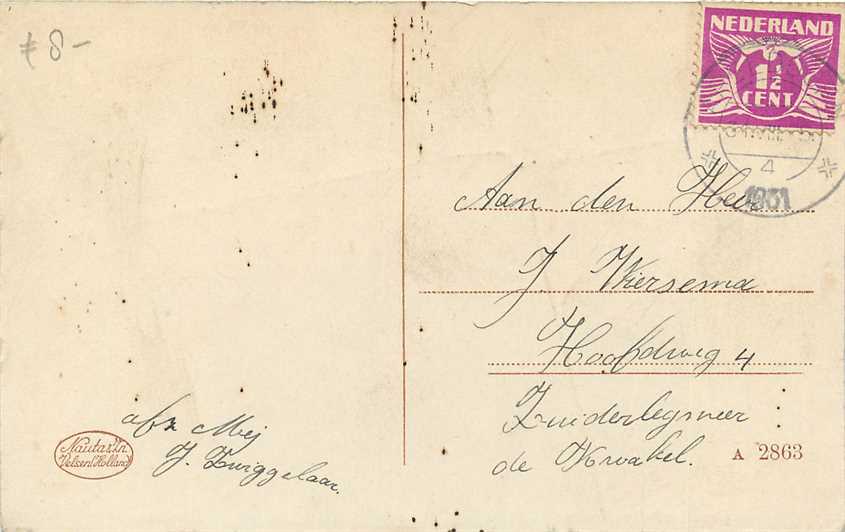 f 8-
NEDERLAND
1½
CENT
4
1931
Aan den Heer
J. Wiersema
Hoofdweg 4
Zuiderlegmeer
de Kwakel.
afz Mej
J. Zwiggelaar.
Nauta
Velsen (Holland)
A 2863